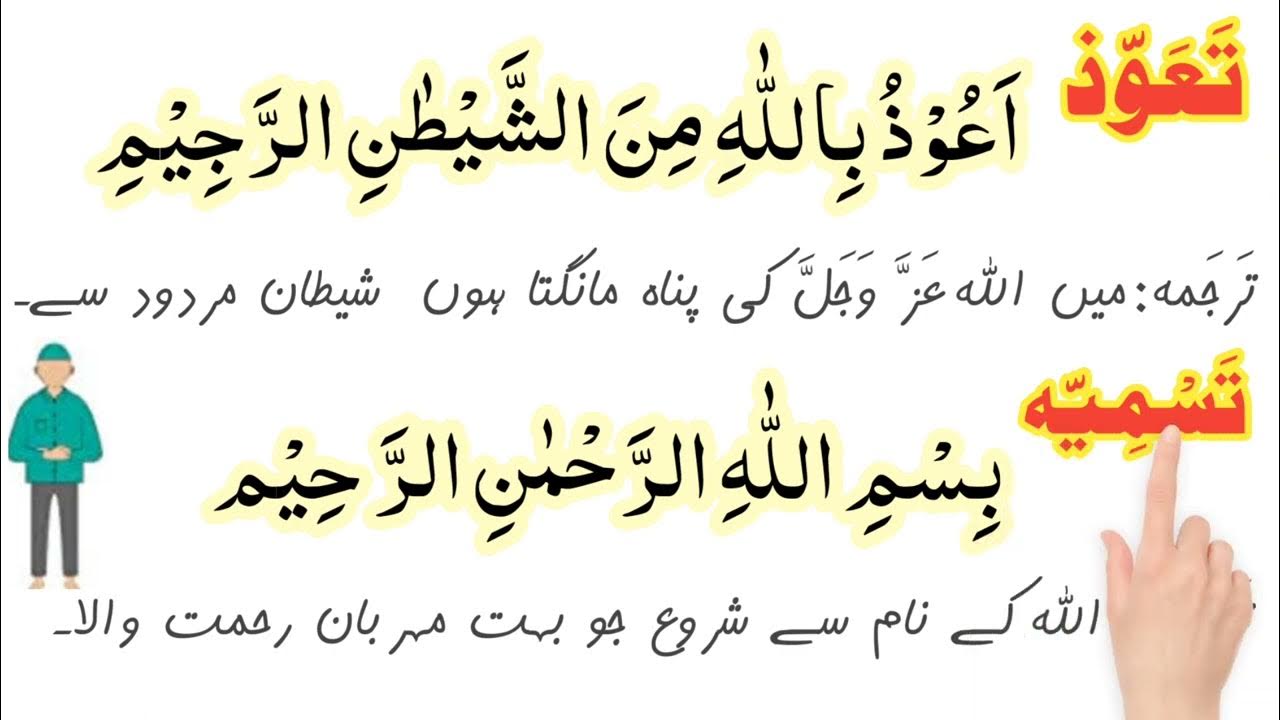 تَعَوّذ
اَعُوْذُ بِاللّٰهِ مِنَ الشَّيْطٰنِ الرَّجِيْمِ
تَرجَمه: میں اللّٰه عَزَّ وَجَلَّ کی پناہ مانگتا ہوں شیطان مردود سے۔
تَسْمِیّه
بِسْمِ اللّٰهِ الرَّحْمٰنِ الرَّحِيْم
اللّٰه کے نام سے شروع جو بہت مہربان رحمت والا۔